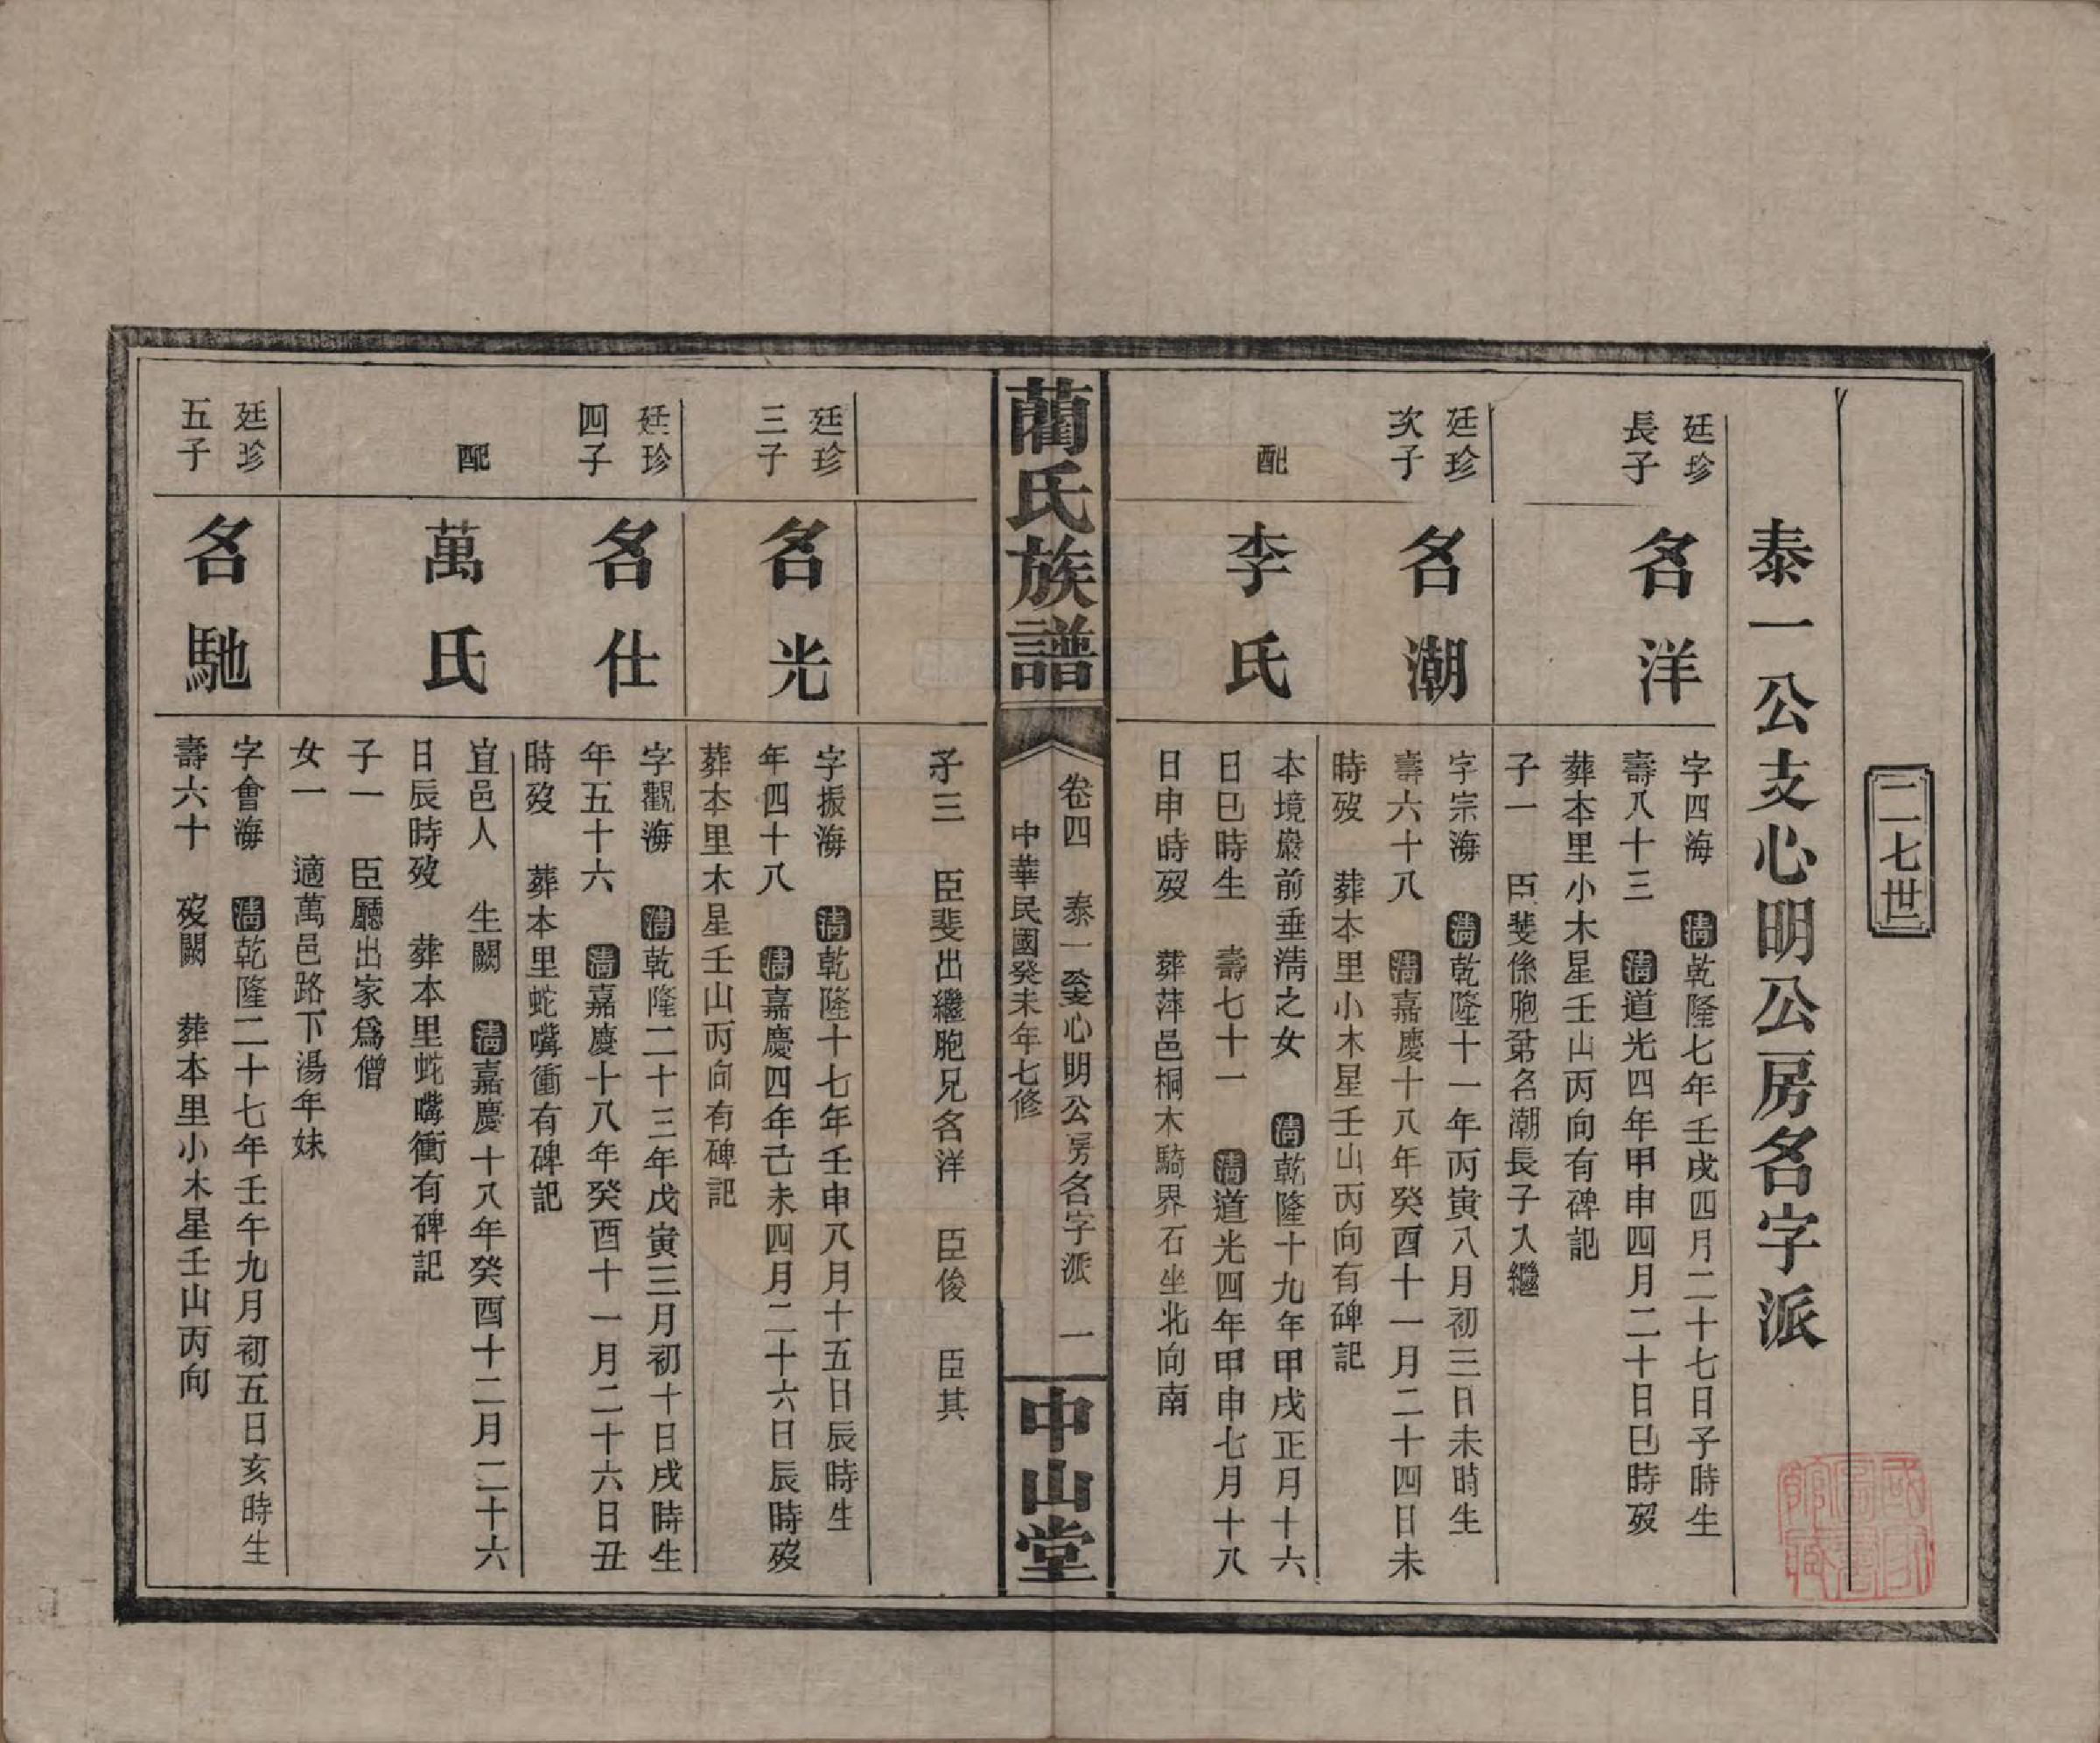 二七世
泰一公支心明公房名字派
廷珍
長子
名洋
字四海　清乾隆七年壬戌四月二十七日子時生
壽八十三　清道光四年甲申四月二十日巳時歿
葬本里小木星壬山丙向有碑記
子一　臣斐係胞弟名潮長子入繼
廷珍
次子
名潮
字宗海　清乾隆十一年丙寅八月初三日未時生
壽六十八　清嘉慶十八年癸酉十一月二十四日未
時歿　葬本里小木星壬山丙向有碑記
配
李氏
本境巖前垂淸之女　清乾隆十九年甲戌正月十六
日巳時生　壽七十一　清道光四年甲申七月十八
日申時歿　葬萍邑桐木騎界石坐北向南
藺氏族譜
卷四　泰一公支心明公房名字派　一
中華民國癸未年七修
中山堂
子三　臣斐出繼胞兄名洋　臣俊　臣其
廷珍
三子
名光
字振海　清乾隆十七年壬申八月十五日辰時生
年四十八　清嘉慶四年己未四月二十六日辰時歿
葬本里木星壬山丙向有碑記
廷珍
四子
名仕
字觀海　清乾隆二十三年戊寅三月初十日戌時生
年五十六　清嘉慶十八年癸酉十一月二十六日丑
時歿　葬本里蛇嘴衝有碑記
配
萬氏
宜邑人　生闕　清嘉慶十八年癸酉十二月二十六
日辰時歿　葬本里蛇嘴衝有碑記
子一　臣廳出家爲僧
女一　適萬邑路下湯年妹
廷珍
五子
名馳
字會海　清乾隆二十七年壬午九月初五日亥時生
壽六十　歿闕　葬本里小木星壬山丙向